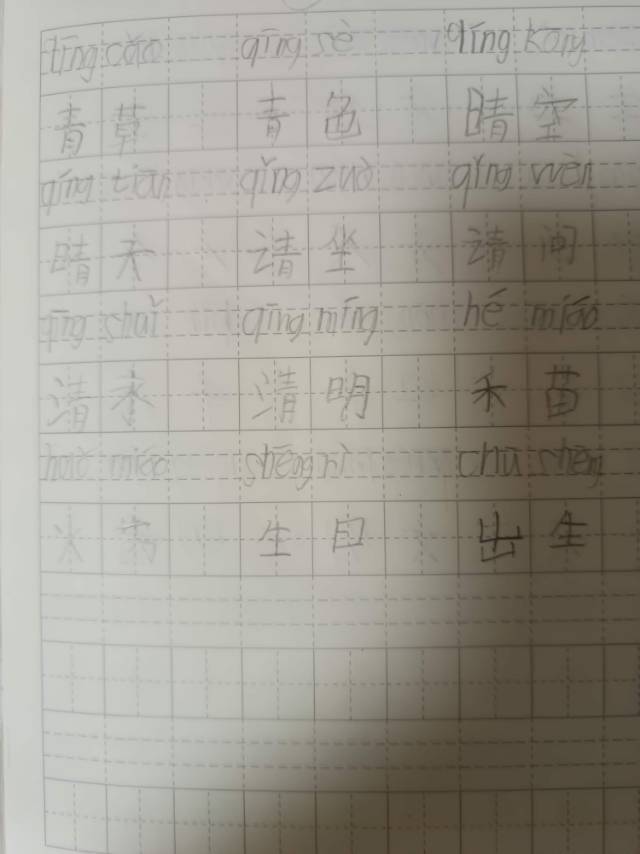 qīng cǎo qīng sè qíng kōng
青草 青色 晴空
qíng tiān qǐng zuò qǐng wèn
晴天 请坐 请问
qīng shuǐ qīng míng hé miáo
清水 清明 禾苗
miáo shēng rì chū shēng
生日 出生